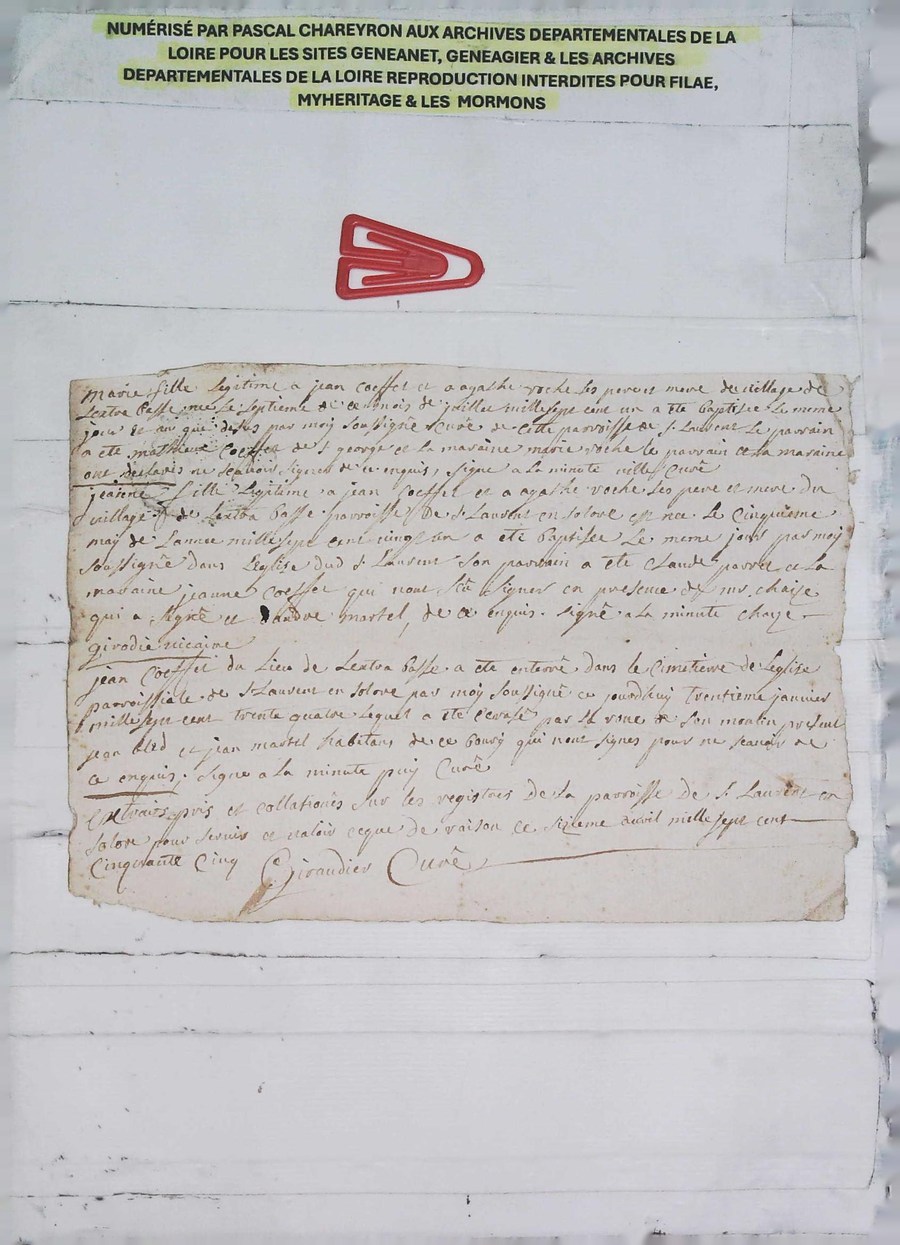 NUMÉRISÉ PAR PASCAL CHAREYRON AUX ARCHIVES DEPARTEMENTALES DE LA
LOIRE POUR LES SITES GENEANET, GENEAGIER & LES ARCHIVES
DEPARTEMENTALES DE LA LOIRE REPRODUCTION INTERDITES POUR FILAE,
MYHERITAGE & LES MORMONS
marie fille legitime a jean Coeffet et a agathe roche ses pere et mere du village de
Lextra basse nee le septieme de ce mois de juillet mille sept cent un a été baptisée le meme
jour et an que dessus par moy soussigné curé de cette parroisse de st Laurent le parrain
a été mathieu Coeffet de st george et la maraine marie roche le parrain et la maraine
ont declarés ne scavoir signer de ce enquis, signé a la minute curé
jeanne fille legitime a jean Coeffet et a agathe roche ses pere et mere du
village de Lextra basse parroisse de st Laurent en solore est nee le cinquieme
may de l'annee mille sept cent vingt un a été baptisée le meme jour par moy
soussigné dans l'eglise dud st Laurent son parrain a été claude et la
maraine jeanne Coeffet qui n'ont sçû signer en presence de mr. chaize
qui a signé et andré martel, de ce enquis. signé a la minute chaize
girodie vicaire
jean Coeffet du lieu de Lextra basse a été enterré dans le cimetierre de l'eglise
parroissiale de st Laurent en solore par moy soussigné ce jourdhuy trentieme janvier
mille sept cent trente quatre lequel a été ecrasé par la roue de son moulin, presents
jean bled et jean martel habitans de ce bourg qui n'ont signés pour ne scavoir de
ce enquis, signé a la minute puy Curé
extraits pris et collationés sur les registres de la parroisse de st Laurent en
solore pour servir et valoir ce que de raison ce sixieme avril mille sept cent
cinquante cinq Giraudier Curé